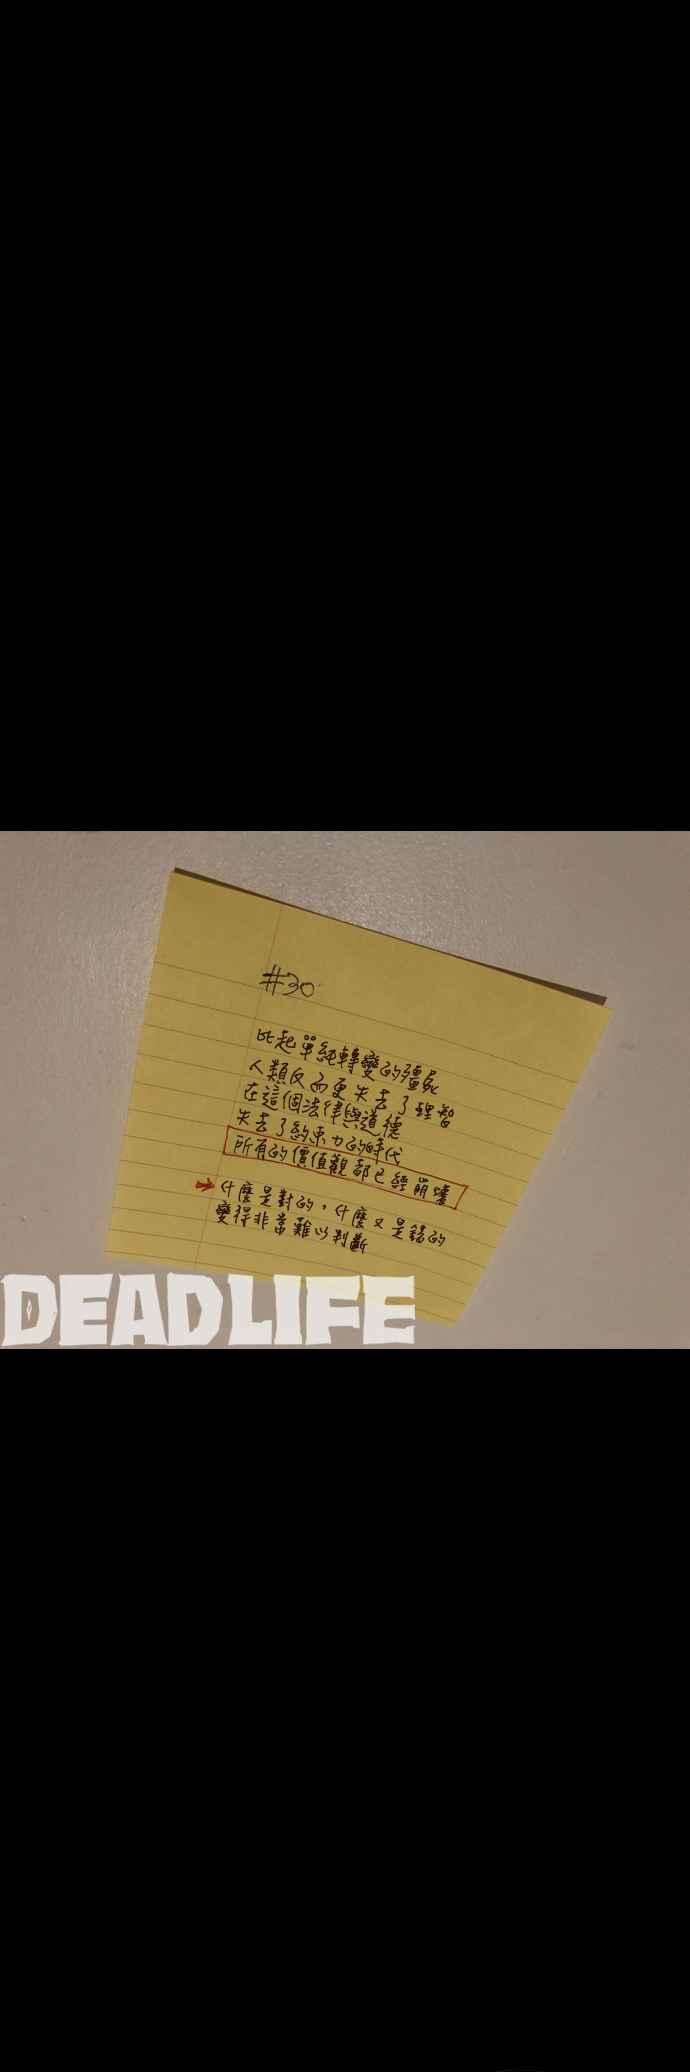 #30
比起單純轉變的殭屍
人類反而更失去了理智
在這個法律與道德
失去了約束力的時代
所有的價值觀都已經崩壞
→什麼是對的，什麼又是錯的
變得非常難以判斷
DEADLIFE